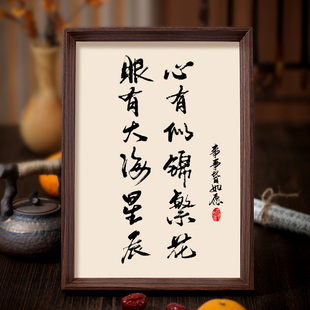 心有似锦繁花
眼有大海星辰
事事皆如愿